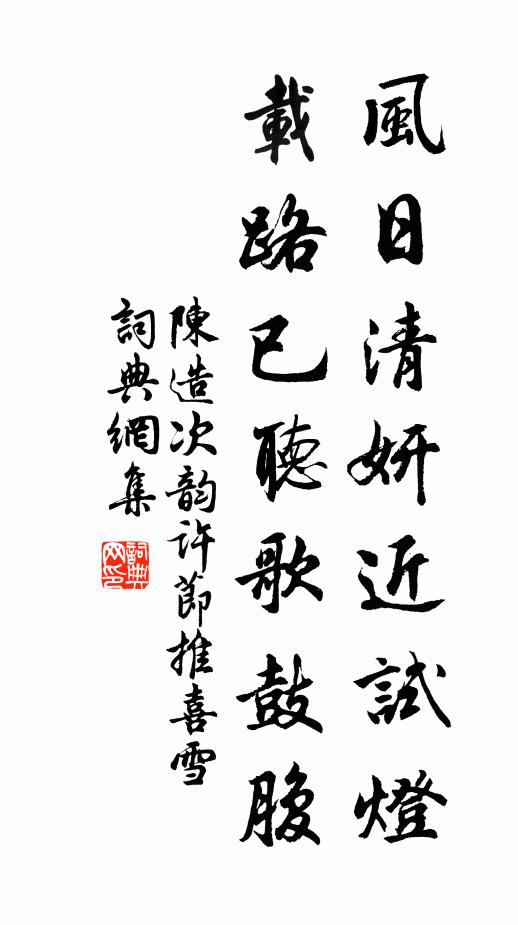 風日清妍近試燈
載路已聽歌鼓腹
陳造次韵許節推喜雪
詞典網集
詞典网印